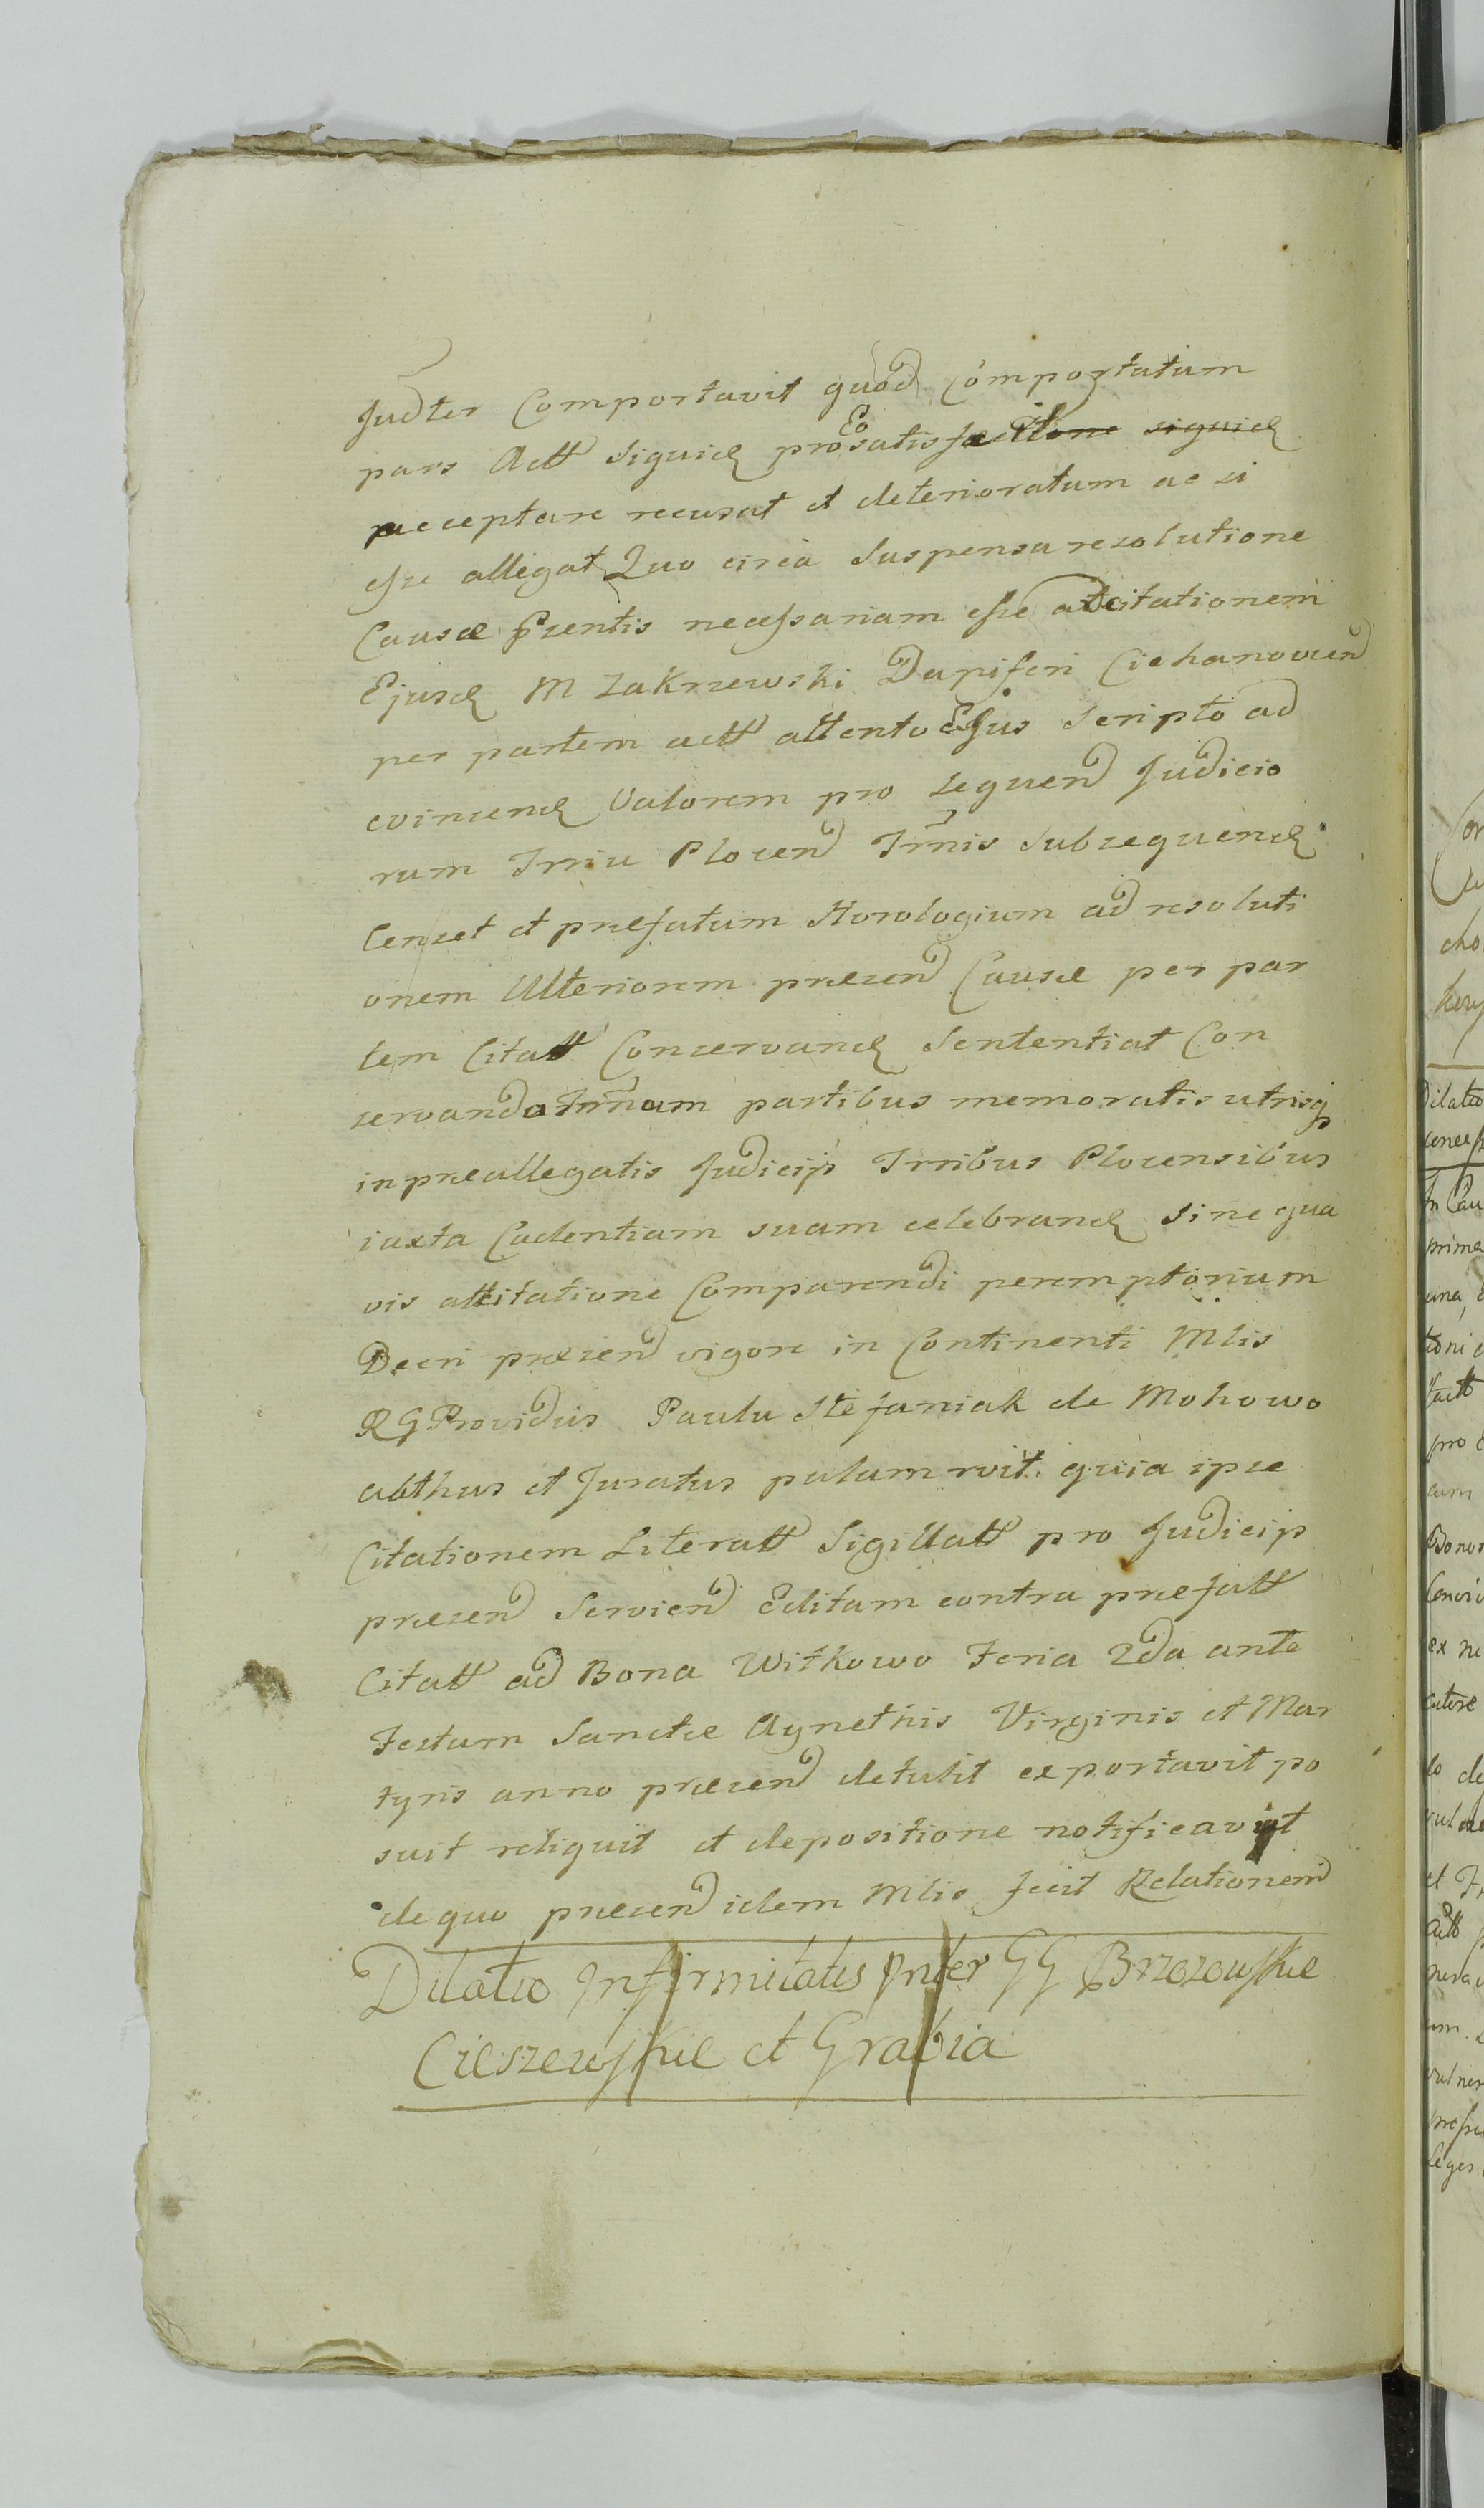 Judter Comportavit quod Comportatum
pars Actt siquid pro Eo satisfactione siquid
acceptare recusat et deterioratum ac si
esse allegat Quo circa Suspensa resolutione
Causæ Pzentis necessariam esse adcitationem
Ejusd M Zakrzewski Dapiferi Ciehanovien
per partem actt attento Ejus Scripto ad
evincend Valorem pro sequend Judicio
rum Trriu Plocen Trmis Subsequend
Censet et præfatum Horologium ad resoluti
onem Ulteriorem præsen Causæ per par
tem Citatt Conservand Sententiat Con
servanda Trmnam partibus memoratis utrisq
in præallegatis Judicijs Trribus Plocensibus
iuxta Cadentiam suam celebrand sine qua
vis attitatione Comparendi peremptorium
Decri præsen vigore in Continenti Mlis
RG Providus Paulu Stefaniak de Mohowo
authus et Juratus palam rvit quia ipse
Citationem Literatt Sigillatt pro Judicijs
præsen Servien Editam contra præfatt
Citatt ad Bona Witkowo Feria 2da ante
Festum Sanctæ Agnethis Virginis et Mar
tyris anno præsen detulit exportavit po
suit reliquit et depositione notificavit
de quo præsen idem Mlis fecit Relationem
Dilatio Infirmitatis Inter GG Brzozowskie
Cieszewskie et Grabia
Dilatio
concess
In Cau
prima
una
pro
cum
Bonor
ex ne
leges